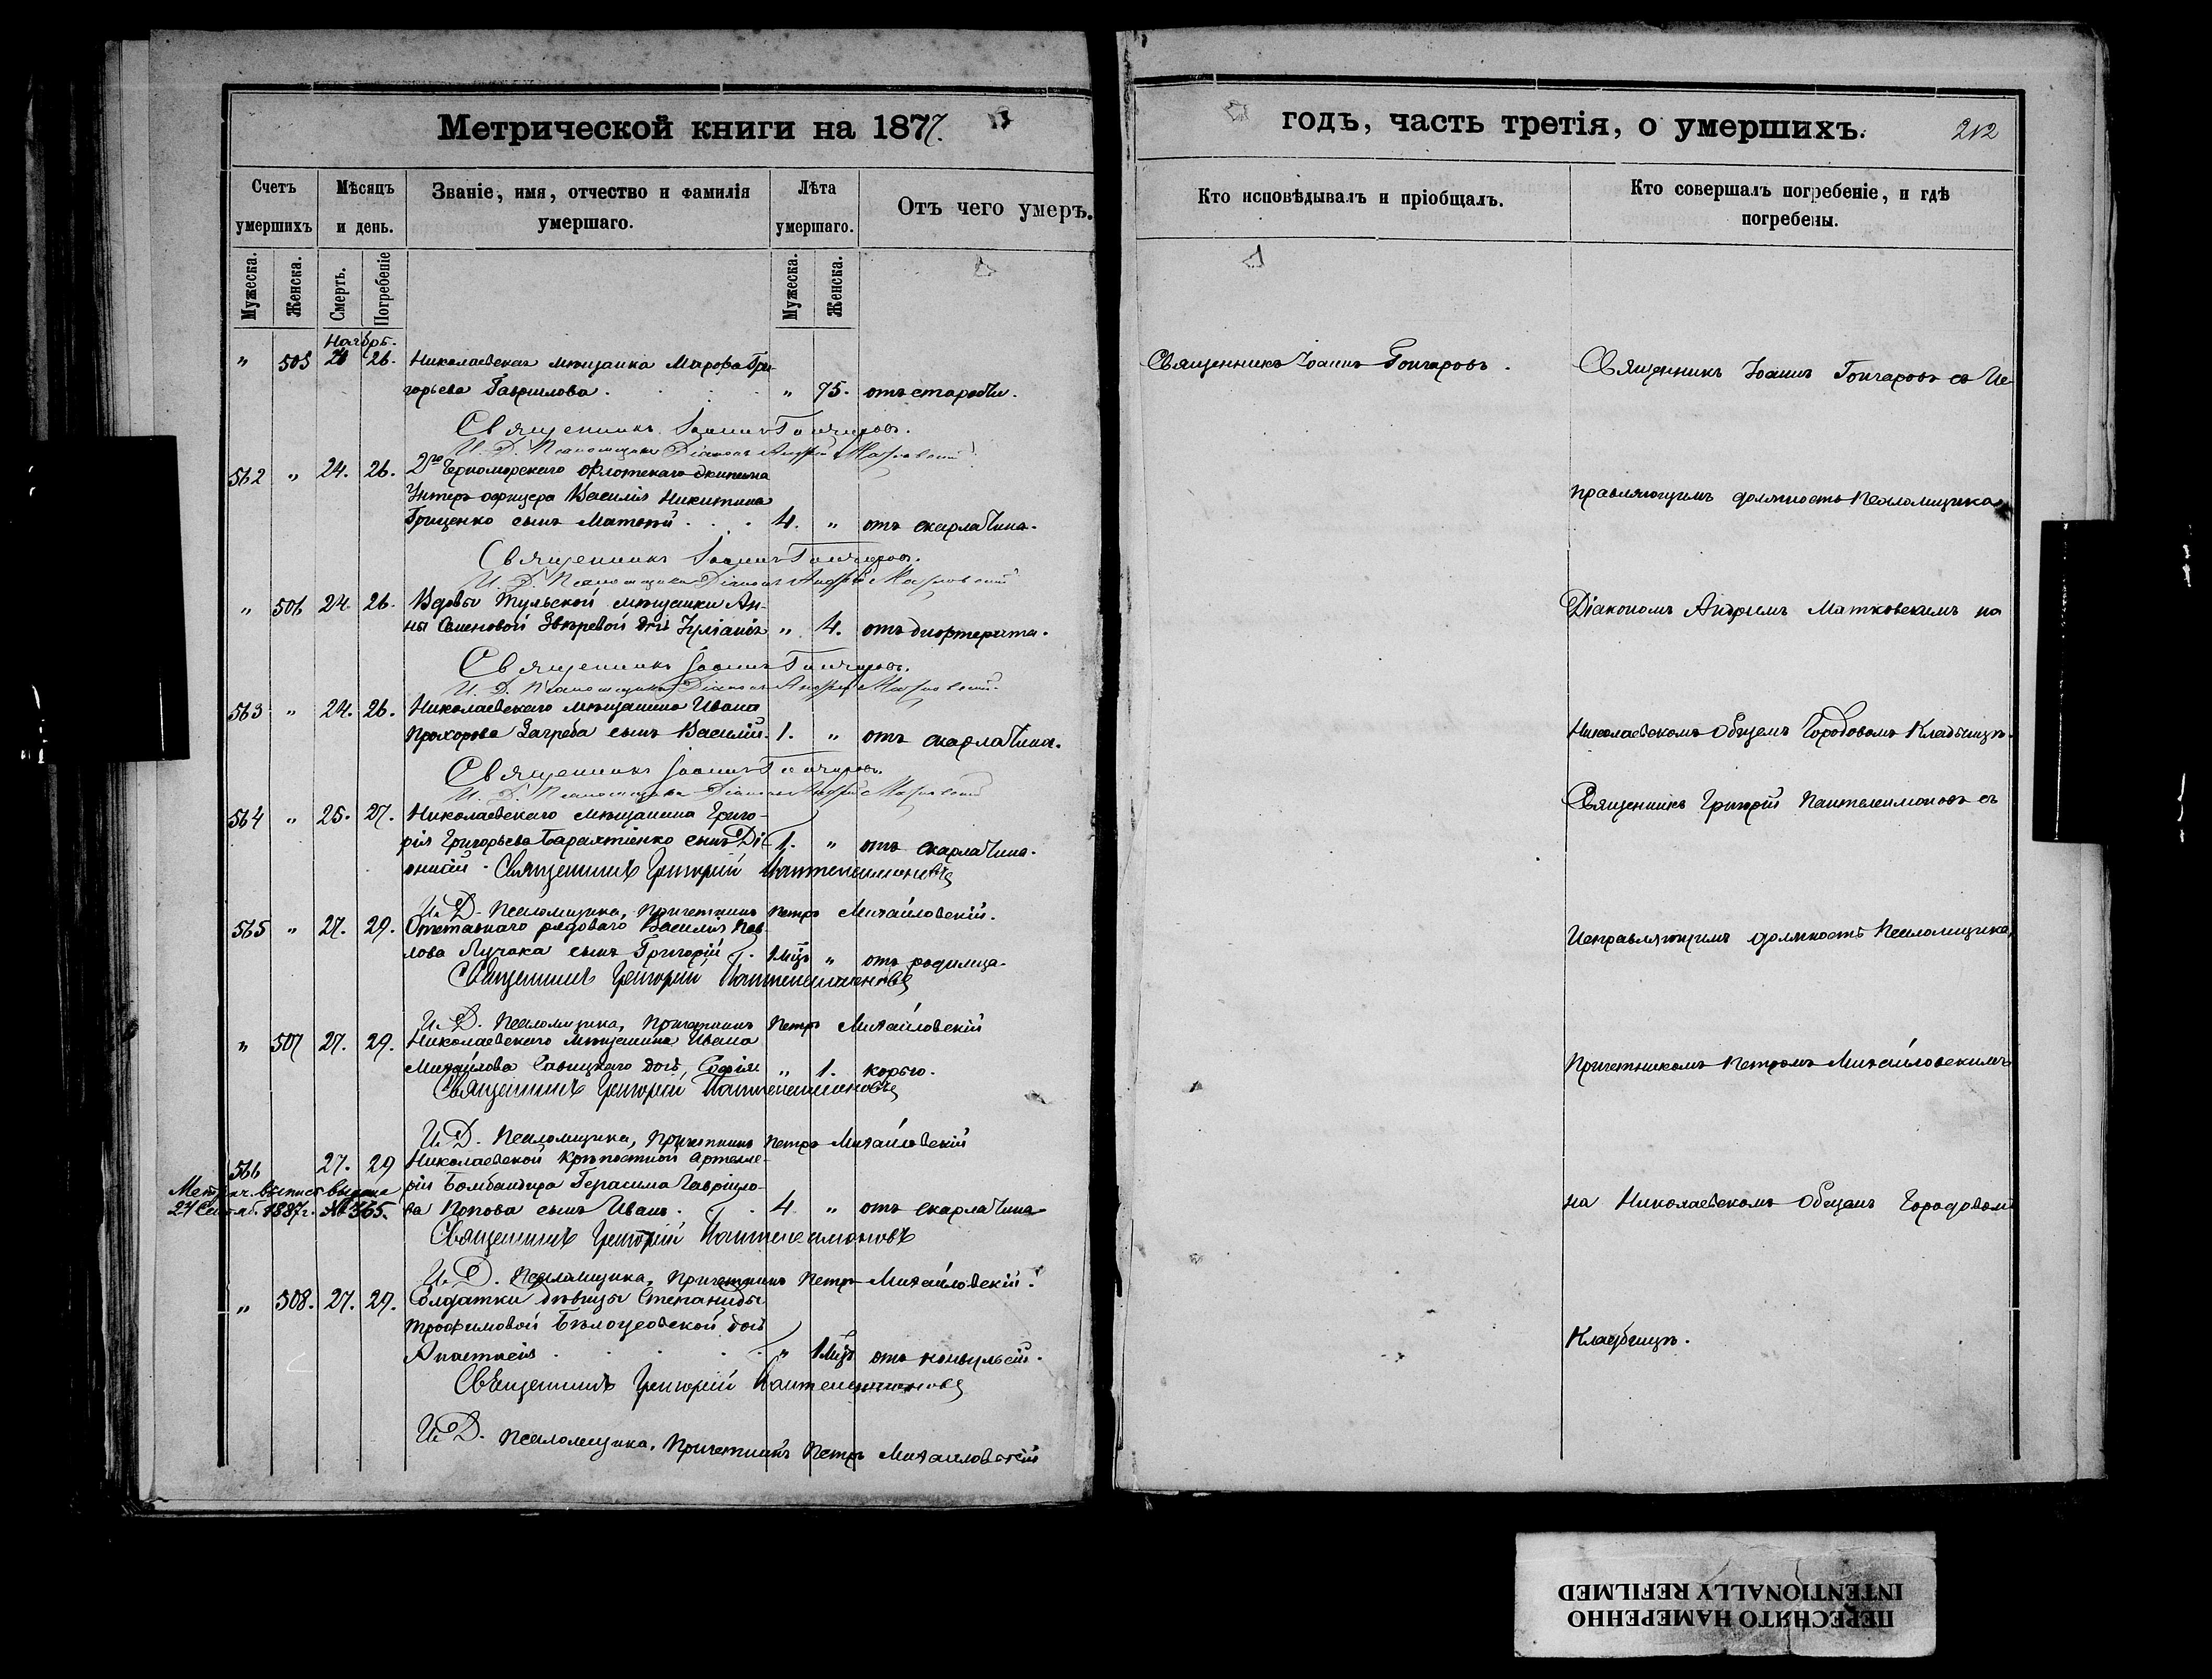 Метрической книги на 1877.
Счетъ умершихъ
Мѣсяцъ и день.
Званіе, имя, отчество и фамилія умершаго.
Лѣта умершаго.
Отъ чего умеръ.
Мужеска. Женска. Смерть. Погребеніе Мужеска. Женска.
Ноябрь.
" 505 20 26. Николаевская мѣщанка Марфа Гри-
горьева Гаврилова. " 75. отъ старости.
Священникъ Іоаннъ Гончаровъ.
И. Д. Псаломщика Діаконъ Андрей
562 " 24. 26. 2го Черноморскаго флотскаго экипажа
Унтеръ офицера Василія Никитина
Гриценко сынъ Матвѣй 4. " отъ скарлатина.
Священникъ Іоаннъ Гончаровъ.
И. Д. Псаломщика Діаконъ Андрей
" 506 24. 26. Вдовы Тульской мѣщанки Ан-
ны Семеновой Звѣревой дчь Іуліанія " 4. отъ дифтерита.
Священникъ Іоаннъ Гончаровъ.
И. Д. Псаломщика Діаконъ Андрей
563 " 24. 26. Николаевскаго мѣщанина Ивана
Прохорова Загреба сынъ Василій. 1. " отъ скарлатина.
Священникъ Іоаннъ Гончаровъ.
И. Д. Псаломщика Діаконъ Андрей
564 " 25. 27. Николаевскаго мѣщанина Григо-
рія Григорьева сынъ Ді- 1. " отъ скарлатина.
онисій. Священникъ Григорій Пантелеимоновъ
И. Д. Псаломщика, Причетникъ Петръ Михайловскій.
565 " 27. 29. Отставнаго рядоваго Василія Пав-
лова Лучака сынъ Григорій 1 мцъ " отъ родимца.
Священникъ Григорій Пантелеимоновъ
И. Д. Псаломщика, Причетникъ Петръ Михайловскій
" 507 27. 29. Николаевскаго Мѣщанина Ивана
Михайлова Савицкаго дочь, Софія " 1. корью.
Священникъ Григорій Пантелеимоновъ
И. Д. Псаломщика, Причетникъ Петръ Михайловскій
566 27. 29 Николаевской Крѣпостной Артелле-
Метрич. выпись выдана рія Бомбандира Герасима Гаврило-
27 Сентяб. 1887 г. № 365. ва Попова сынъ Иванъ. 4 " отъ скарлатина
Священникъ Григорій Пантелеимоновъ
И. Д. Псаломщика, Причетникъ Петръ Михайловскій.
" 508. 27. 29. Солдатки дѣвицы Степаниды
Трофимовой дочь
Анастасія " 1 мцъ отъ конвульсій.
Священникъ Григорій Пантелеимоновъ
И. Д. Псаломщика, Причетникъ Петръ Михайловскій
годъ, часть третія, о умершихъ. 212
Кто исповѣдывалъ и пріобщалъ.
Кто совершалъ погребеніе, и гдѣ погребены.
Священникъ Іоаннъ Гончаровъ.
Священникъ Іоаннъ Гончаровъ съ Ис-
правляющимъ должность Псаломщика
Діакономъ Андреемъ Мятковскимъ на
Николаевскомъ Общемъ Городовомъ Кладбищѣ.
Священникъ Григорій Пантелеимоновъ съ
Исправляющимъ должность Псаломщика,
Причетникомъ Петромъ Михайловскимъ
на Николаевскомъ Общемъ Городовомъ
Кладбищѣ.
ПЕРЕСНЯТО НАМЕРЕННО
INTENTIONALLY REFILMED